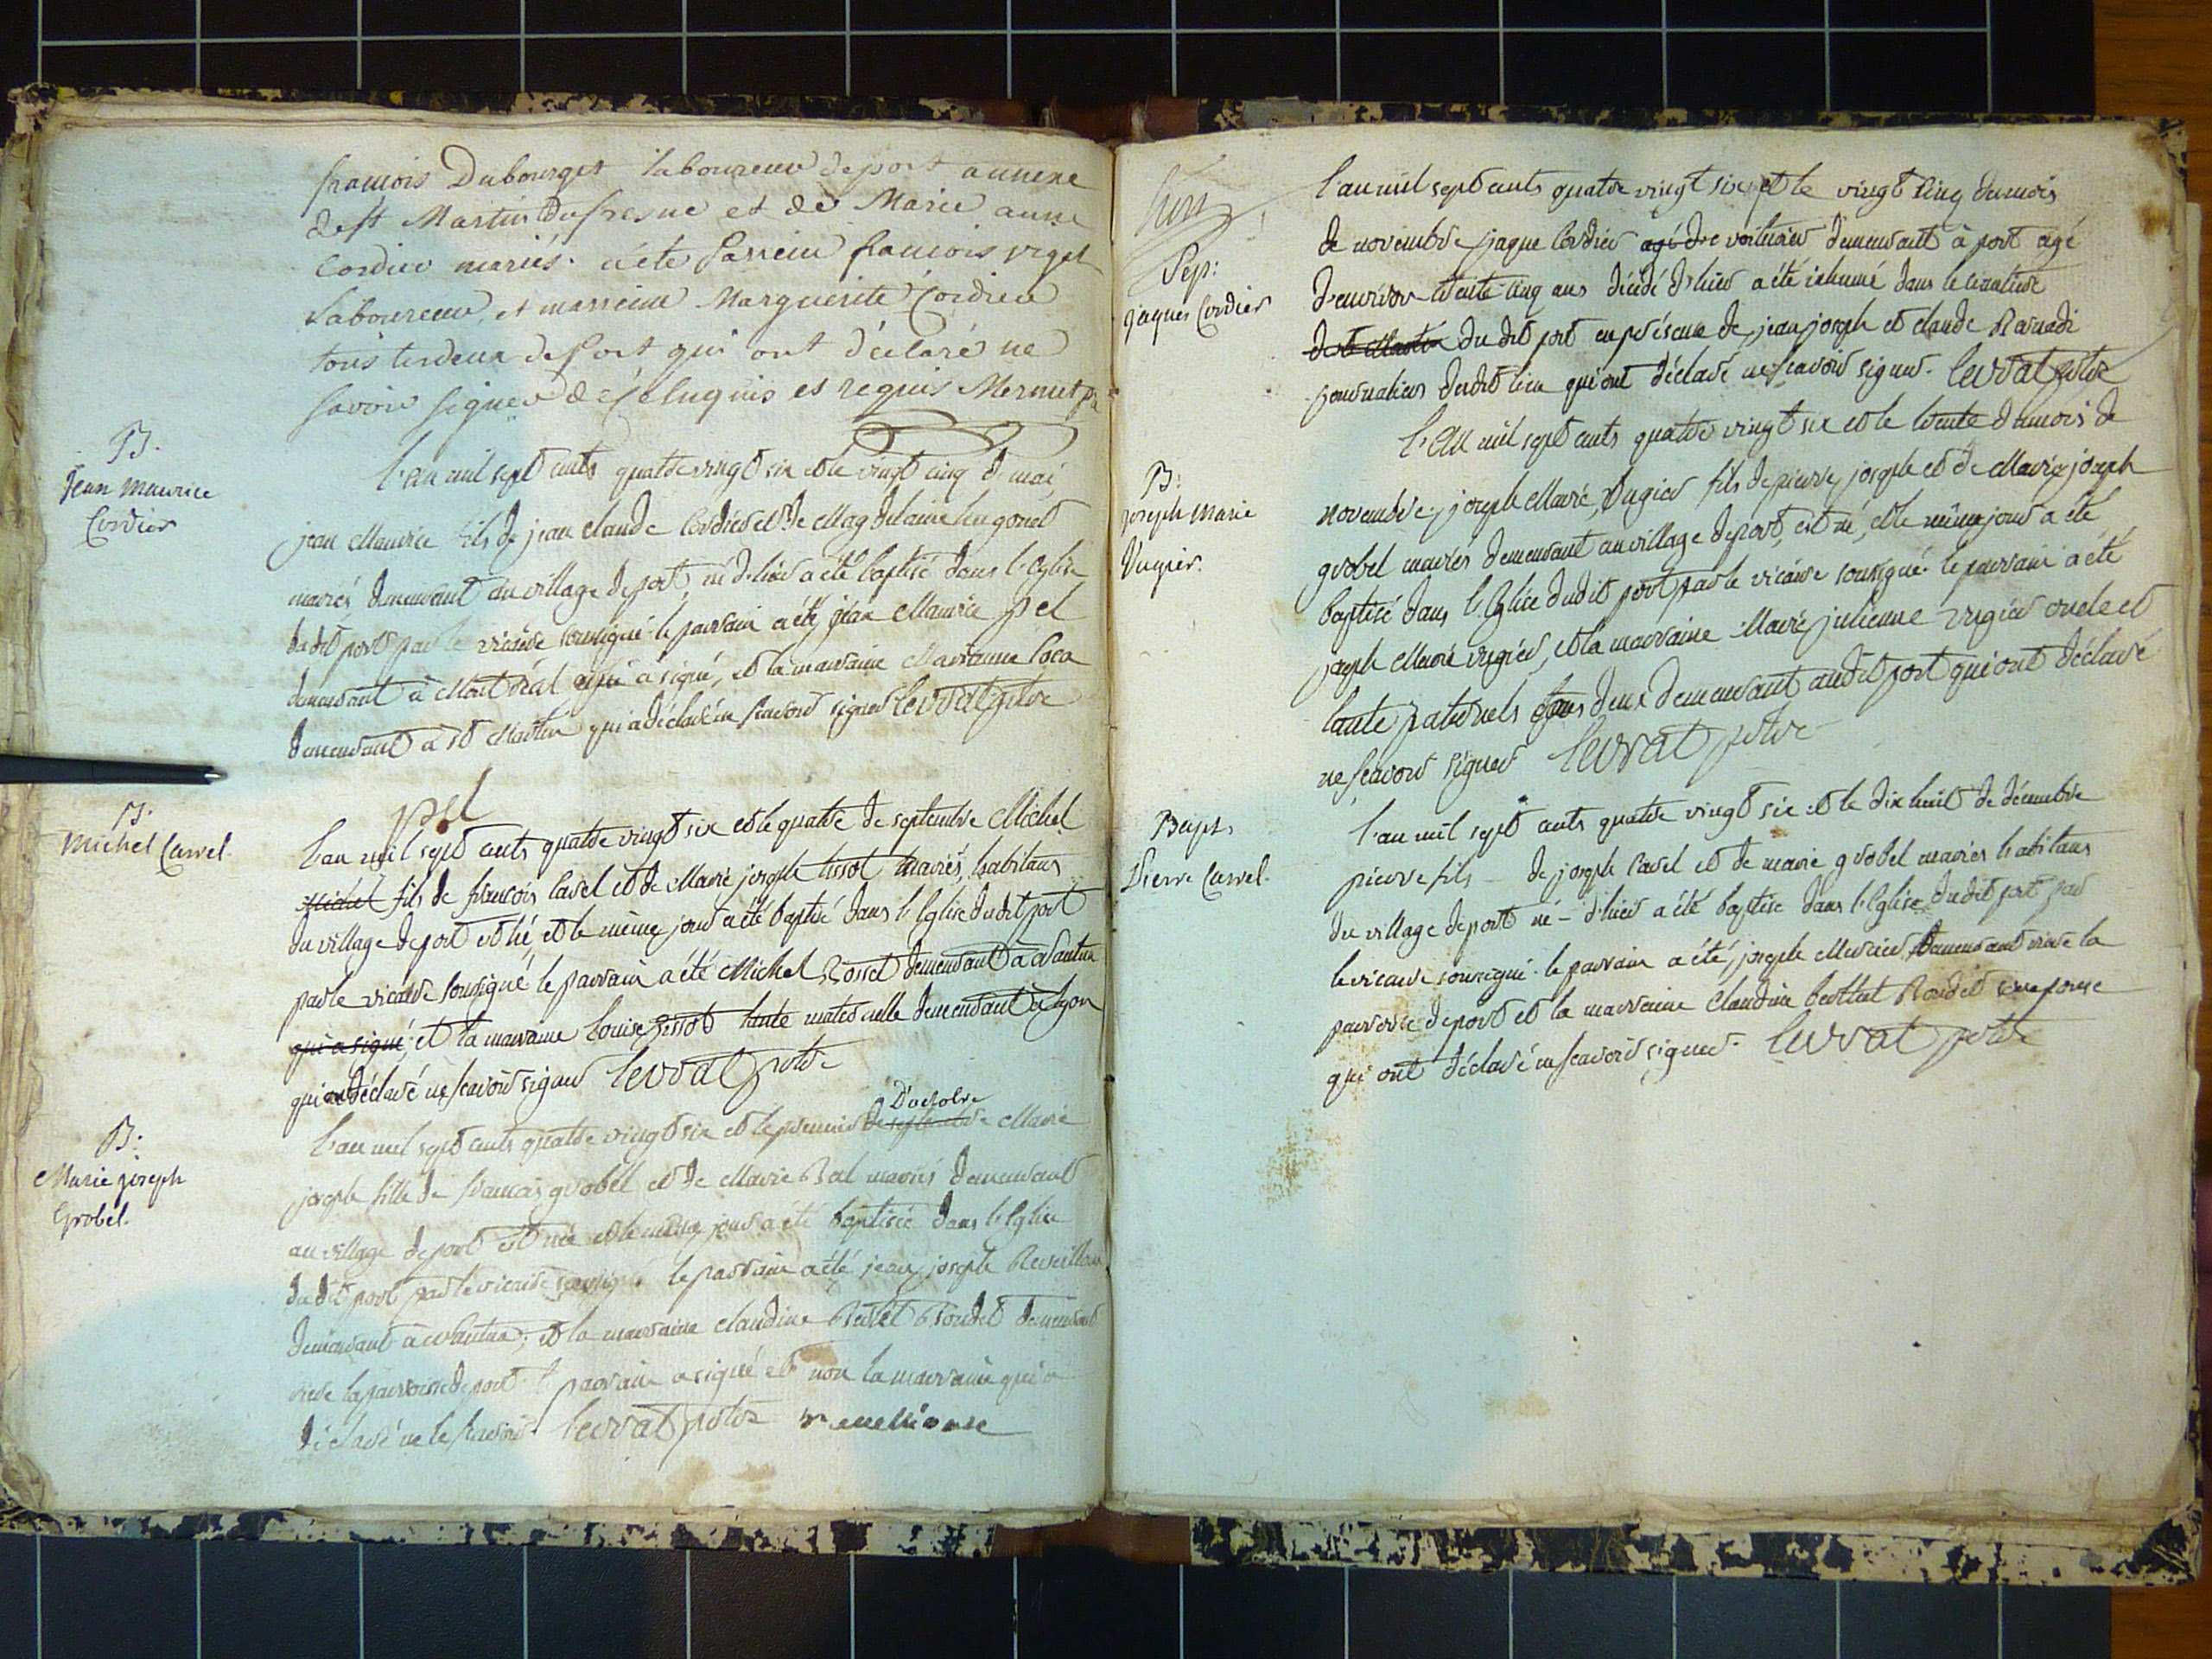 françois Dubourget laboureur de port annexe
de st Martin Dufresne et de Marie anne
Cordier mariés. a été Parrein françois viget
Laboureur, et marreine Marguerite Cordier
tous les deux de Port qui ont déclaré ne
savoir signer de ce enquis et requis Mermet ptr
B.
Jean Maurice
Cordier
L'an mil sept cents quatre vingt six et le vingt cinq de mai
jean Maurice fils de jean claude Cordier et de Magdelaine hugonet
mariés demeurant au village de port, né d'hier a été baptisé dans l'Eglise
dudit port par le vicaire soussigné. le parrain a été jéan Maurice pel
demeurant à Montréal qui a signé, et la marraine Marianne Coca
demeurant à st Martin qui a déclaré ne scavoir signer levrat ptre
pel
B.
Michel Carrel
L'an mil sept cents quatre vingt six et le quatre de septembre Michel
Michel fils de françois Carel et de Marie joseph tissot mariés, habitans
du village de port est né, et le même jour a été baptisé dans l'Eglise dudit port
par le vicaire soussigné, le parrain a été Michel Rosset demeurant à Nantua
qui a signé, et la marraine louise tissot tante maternelle demeurant à lyon
qui ont déclaré ne scavoir signer levrat ptre
B:
Marie joseph
Grobel.
D'octobre
L'an mil sept cents quatre vingt six et le premier de septembre Marie
joseph fille de françois grobel et de Marie Bal mariés demeurant
au village de port est née et le même jour a été baptisée dans l'Eglise
du dit port par le vicaire soussigné. le parrain a été jean joseph Reveillon
demeurant à Nantua, et la marraine claudine Rondet demeurant
riere la parroisse de port. le parrain a signé et non la marraine qui a
déclaré ne le scavoir levrat ptre
Sep:
jaques Cordier
L'an mil sept cents quatre vingt six, et le vingt cinq du mois
de novembre jaque Cordier agé de voiturier demeurant à port agé
d'environ trente cinq ans décédé d'hier a été inhumé dans le cimetiere
de st Martin du dit port en présence de jean joseph et claude Ravadi
journaliers dudit lieu qui ont déclaré ne scavoir signer. levrat ptre
B:
joseph Marie
Vugier.
L'an mil sept cents quatre vingt six et le trente du mois de
novembre, joseph Marie Vugier fils de pierre joseph et de Marie joseph
grobel mariés demeurant au village de port, est né, et le même jour a été
baptisé dans l'Eglise dudit port par le vicaire soussigné. le parrain a été
joseph Marie vugier, et la marraine Marie julienne vugier oncle et
tante paternels tous deux demeurant audit port qui ont déclaré
ne scavoir signer levrat ptre
Bapt.
Pierre Carrel.
L'an mil sept cents quatre vingt six et le dix huit de décembre
pierre fils - de joseph Carel et de marie grobel mariés habitans
du village de port né - d'hier a été baptisé dans l'Eglise dudit port par
le vicaire soussigné. le parrain a été, joseph Mercier demeurant riere la
parroisse de port et la marraine claudine berthet Rondet
qui ont déclaré ne scavoir signer. levrat ptre